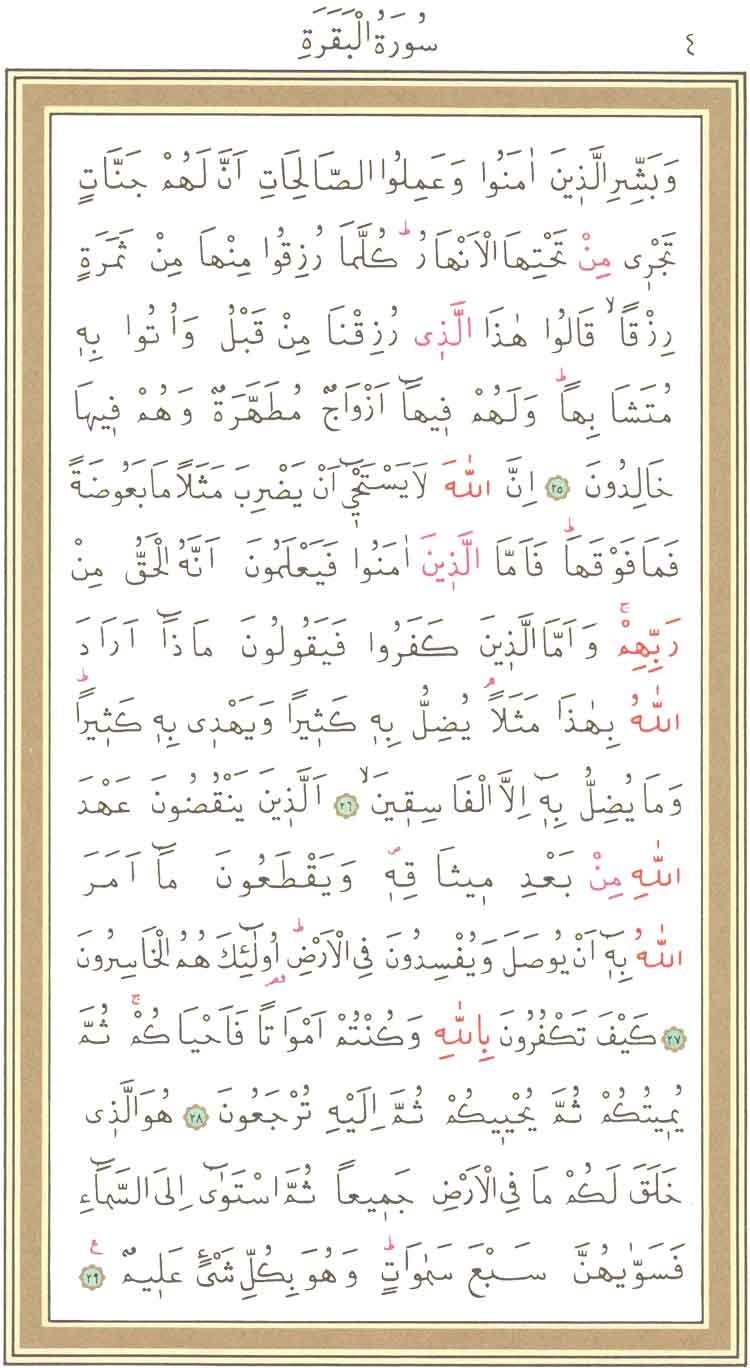 ٤ سُورَةُ الْبَقَرَةِ
وَبَشِّرِ الَّذ۪ينَ اٰمَنُوا وَعَمِلُوا الصَّالِحَاتِ اَنَّ لَهُمْ جَنَّاتٍ
تَجْر۪ى مِنْ تَحْتِهَا الْاَنْهَارُۜ كُلَّمَا رُزِقُوا مِنْهَا مِنْ ثَمَرَةٍ
رِزْقًاۙ قَالُوا هٰذَا الَّذ۪ى رُزِقْنَا مِنْ قَبْلُ وَاُتُوا بِه۪
مُتَشَابِهًاۜ وَلَهُمْ ف۪يهَٓا اَزْوَاجٌ مُطَهَّرَةٌ وَهُمْ ف۪يهَا
خَالِدُونَ ﴿٢٥﴾ اِنَّ اللّٰهَ لَا يَسْتَحْي۪ٓ اَنْ يَضْرِبَ مَثَلًا مَا بَعُوضَةً
فَمَا فَوْقَهَاۜ فَاَمَّا الَّذ۪ينَ اٰمَنُوا فَيَعْلَمُونَ اَنَّهُ الْحَقُّ مِنْ
رَبِّهِمْۚ وَاَمَّا الَّذ۪ينَ كَفَرُوا فَيَقُولُونَ مَاذَٓا اَرَادَ
اللّٰهُ بِهٰذَا مَثَلًاۢ يُضِلُّ بِه۪ كَث۪يرًا وَيَهْد۪ى بِه۪ كَث۪يرًاۜ
وَمَا يُضِلُّ بِه۪ٓ اِلَّا الْفَاسِق۪ينَۙ ﴿٢٦﴾ اَلَّذ۪ينَ يَنْقُضُونَ عَهْدَ
اللّٰهِ مِنْ بَعْدِ م۪يثَاقِه۪ۖ وَيَقْطَعُونَ مَٓا اَمَرَ
اللّٰهُ بِه۪ٓ اَنْ يُوصَلَ وَيُفْسِدُونَ فِى الْاَرْضِۜ اُو۬لٰٓئِكَ هُمُ الْخَاسِرُونَ
﴿٢٧﴾ كَيْفَ تَكْفُرُونَ بِاللّٰهِ وَكُنْتُمْ اَمْوَاتًا فَاَحْيَاكُمْۚ ثُمَّ
يُم۪يتُكُمْ ثُمَّ يُحْي۪يكُمْ ثُمَّ اِلَيْهِ تُرْجَعُونَ ﴿٢٨﴾ هُوَ الَّذ۪ى
خَلَقَ لَكُمْ مَا فِى الْاَرْضِ جَم۪يعًا ثُمَّ اسْتَوٰٓى اِلَى السَّمَٓاءِ
فَسَوّٰيهُنَّ سَبْعَ سَمٰوَاتٍۜ وَهُوَ بِكُلِّ شَىْءٍ عَل۪يمٌ ﴿٢٩﴾ ع